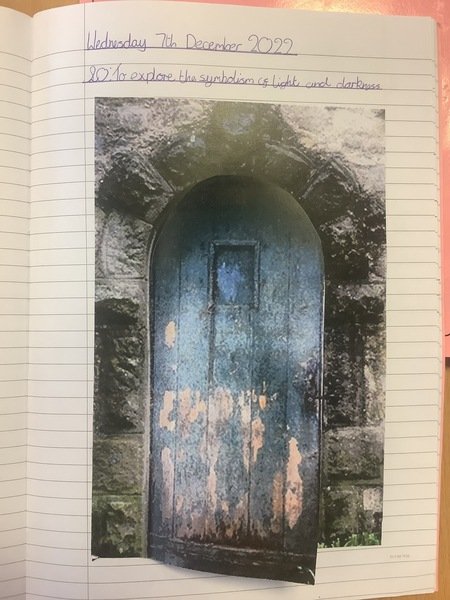 Wednesday 7th December 2022
LO: To explore the symbolism of light and darkness